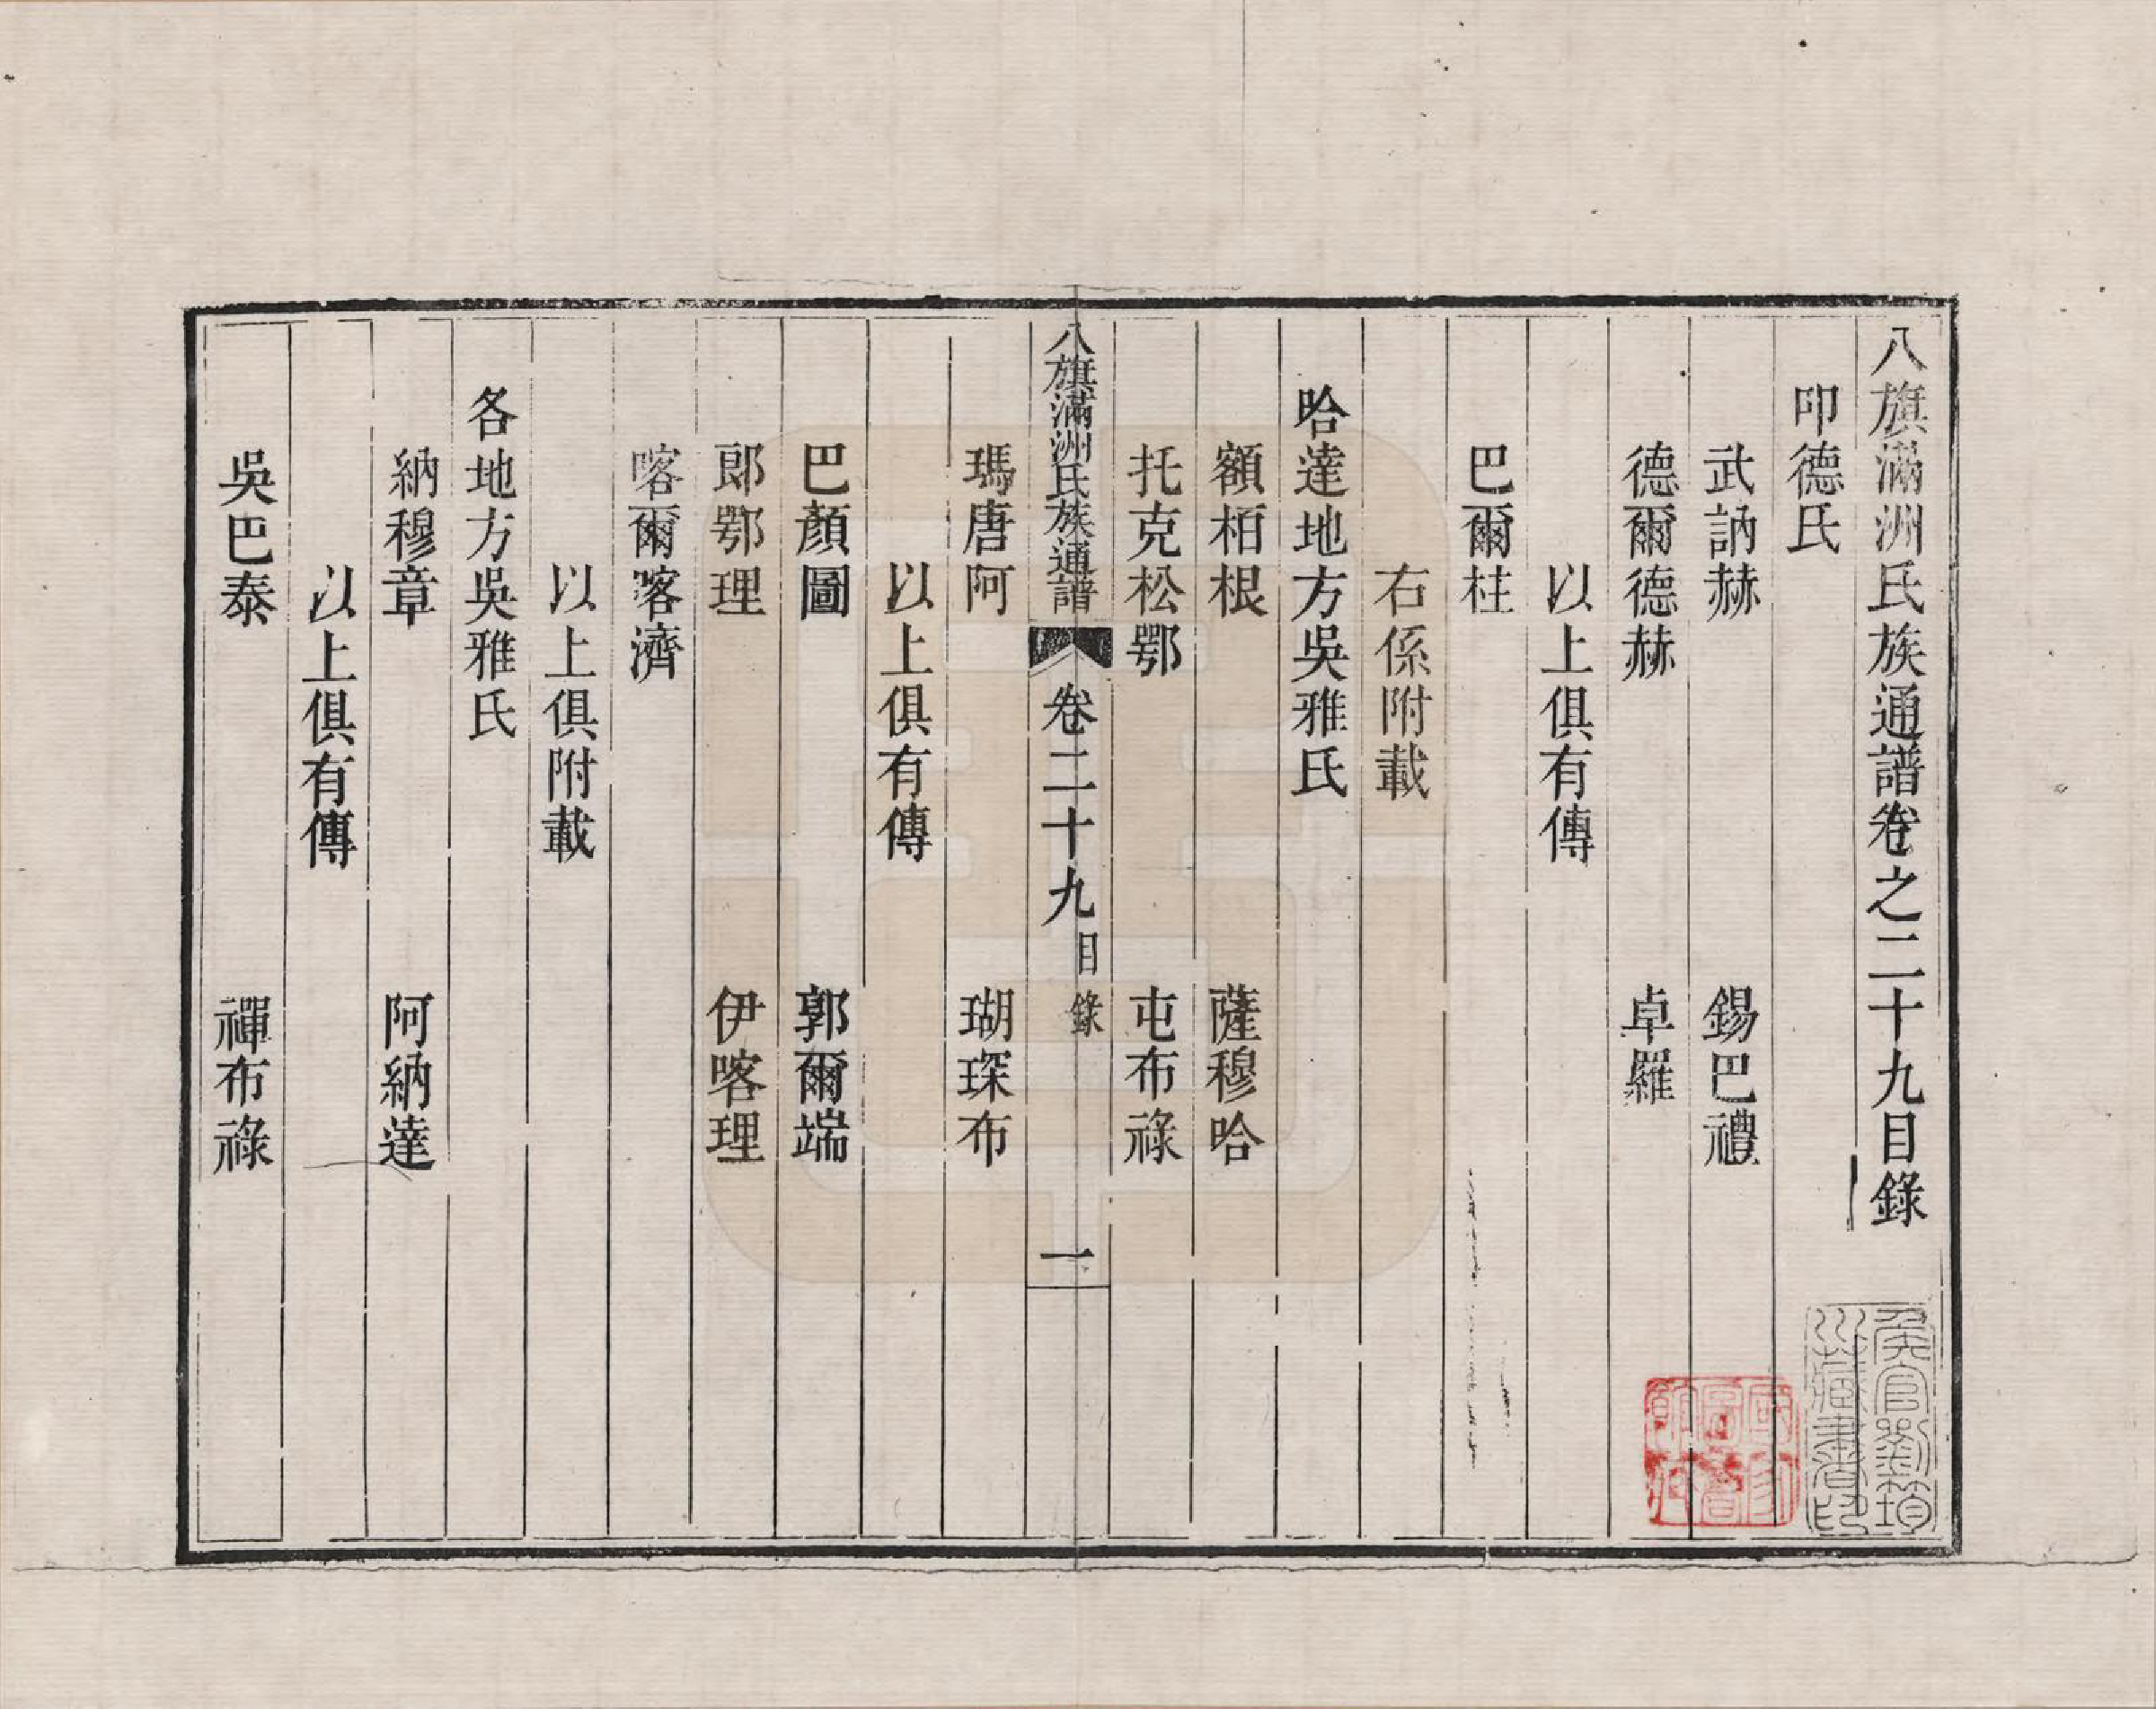 八旗滿洲氏族通譜卷之二十九目錄
叩德氏
武訥赫 錫巴禮
德爾德赫 卓羅
以上俱有傳
巴爾柱
右係附載
哈達地方吳雅氏
額栢根 薩穆哈
托克松鄂 屯布祿
八旗滿洲氏族通譜 卷二十九 目錄 一
瑪唐阿 瑚琛布
以上俱有傳
巴顏圖 郭爾端
郎鄂理 伊喀理
喀爾喀濟
以上俱附載
各地方吳雅氏
納穆章 阿納達
以上俱有傳
吳巴泰 禪布祿
侯官劉筠
川藏書印